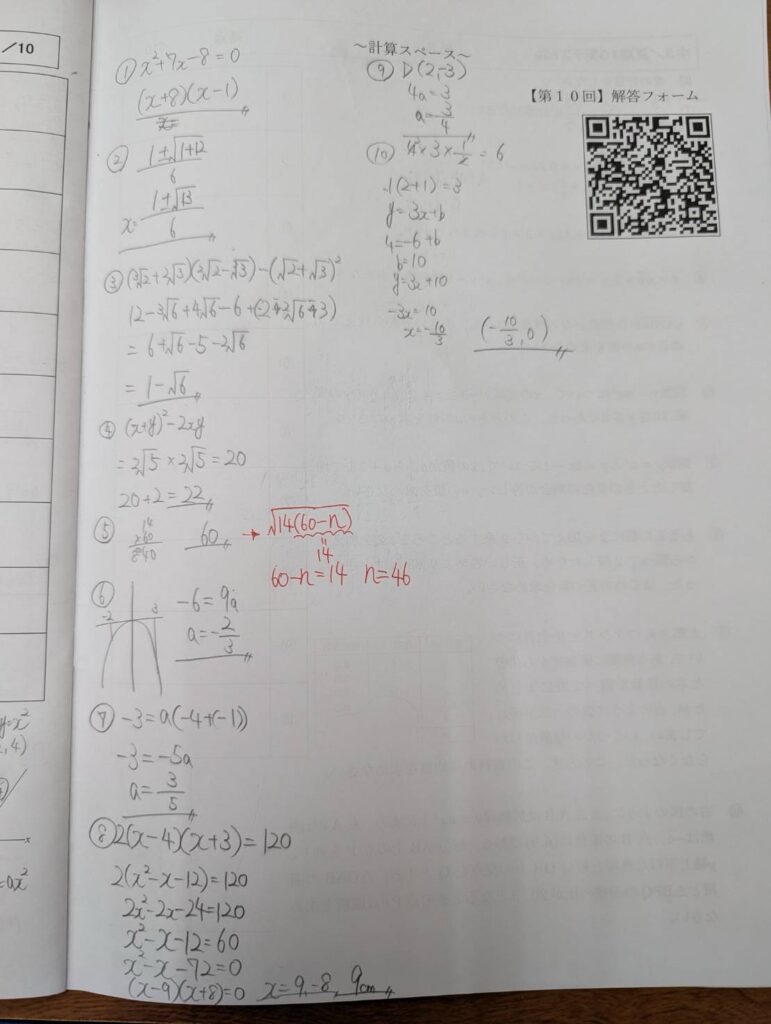 /10
～計算スペース～
【第１０回】解答フォーム
① x²+7x-8=0
(x+8)(x-1)
② 1±√1+12
6
x= 1±√13
6
③ (3√2+2√3)(2√2-√3)-(√2+√3)²
12-3√6+4√6-6+(-2-2√6-3)
=6+√6-5-2√6
=1-√6
④ (x+y)²-2xy
=2√5×2√5=20
20+2=22
⑤ 14
60
840
60 → √14(60-n)
14
60-n=14 n=46
⑥ -2 3
-6=9a
a=-2/3
⑦ -3=a(-4+(-1))
-3=-5a
a=3/5
⑧ 2(x-4)(x+3)=120
2(x²-x-12)=120
2x²-2x-24=120
x²-x-12=60
x²-x-72=0
(x-9)(x+8)=0 x=9,-8, 9cm
⑨ D(2,-3)
4a=3
a=3/4
⑩ 4×3×1/2=6
-1(2+1)=3
y=3x+b
4=-6+b
b=10
y=3x+10
-3x=10
x=-10/3 (-10/3,0)
y=x²
,4)
x
=ax²